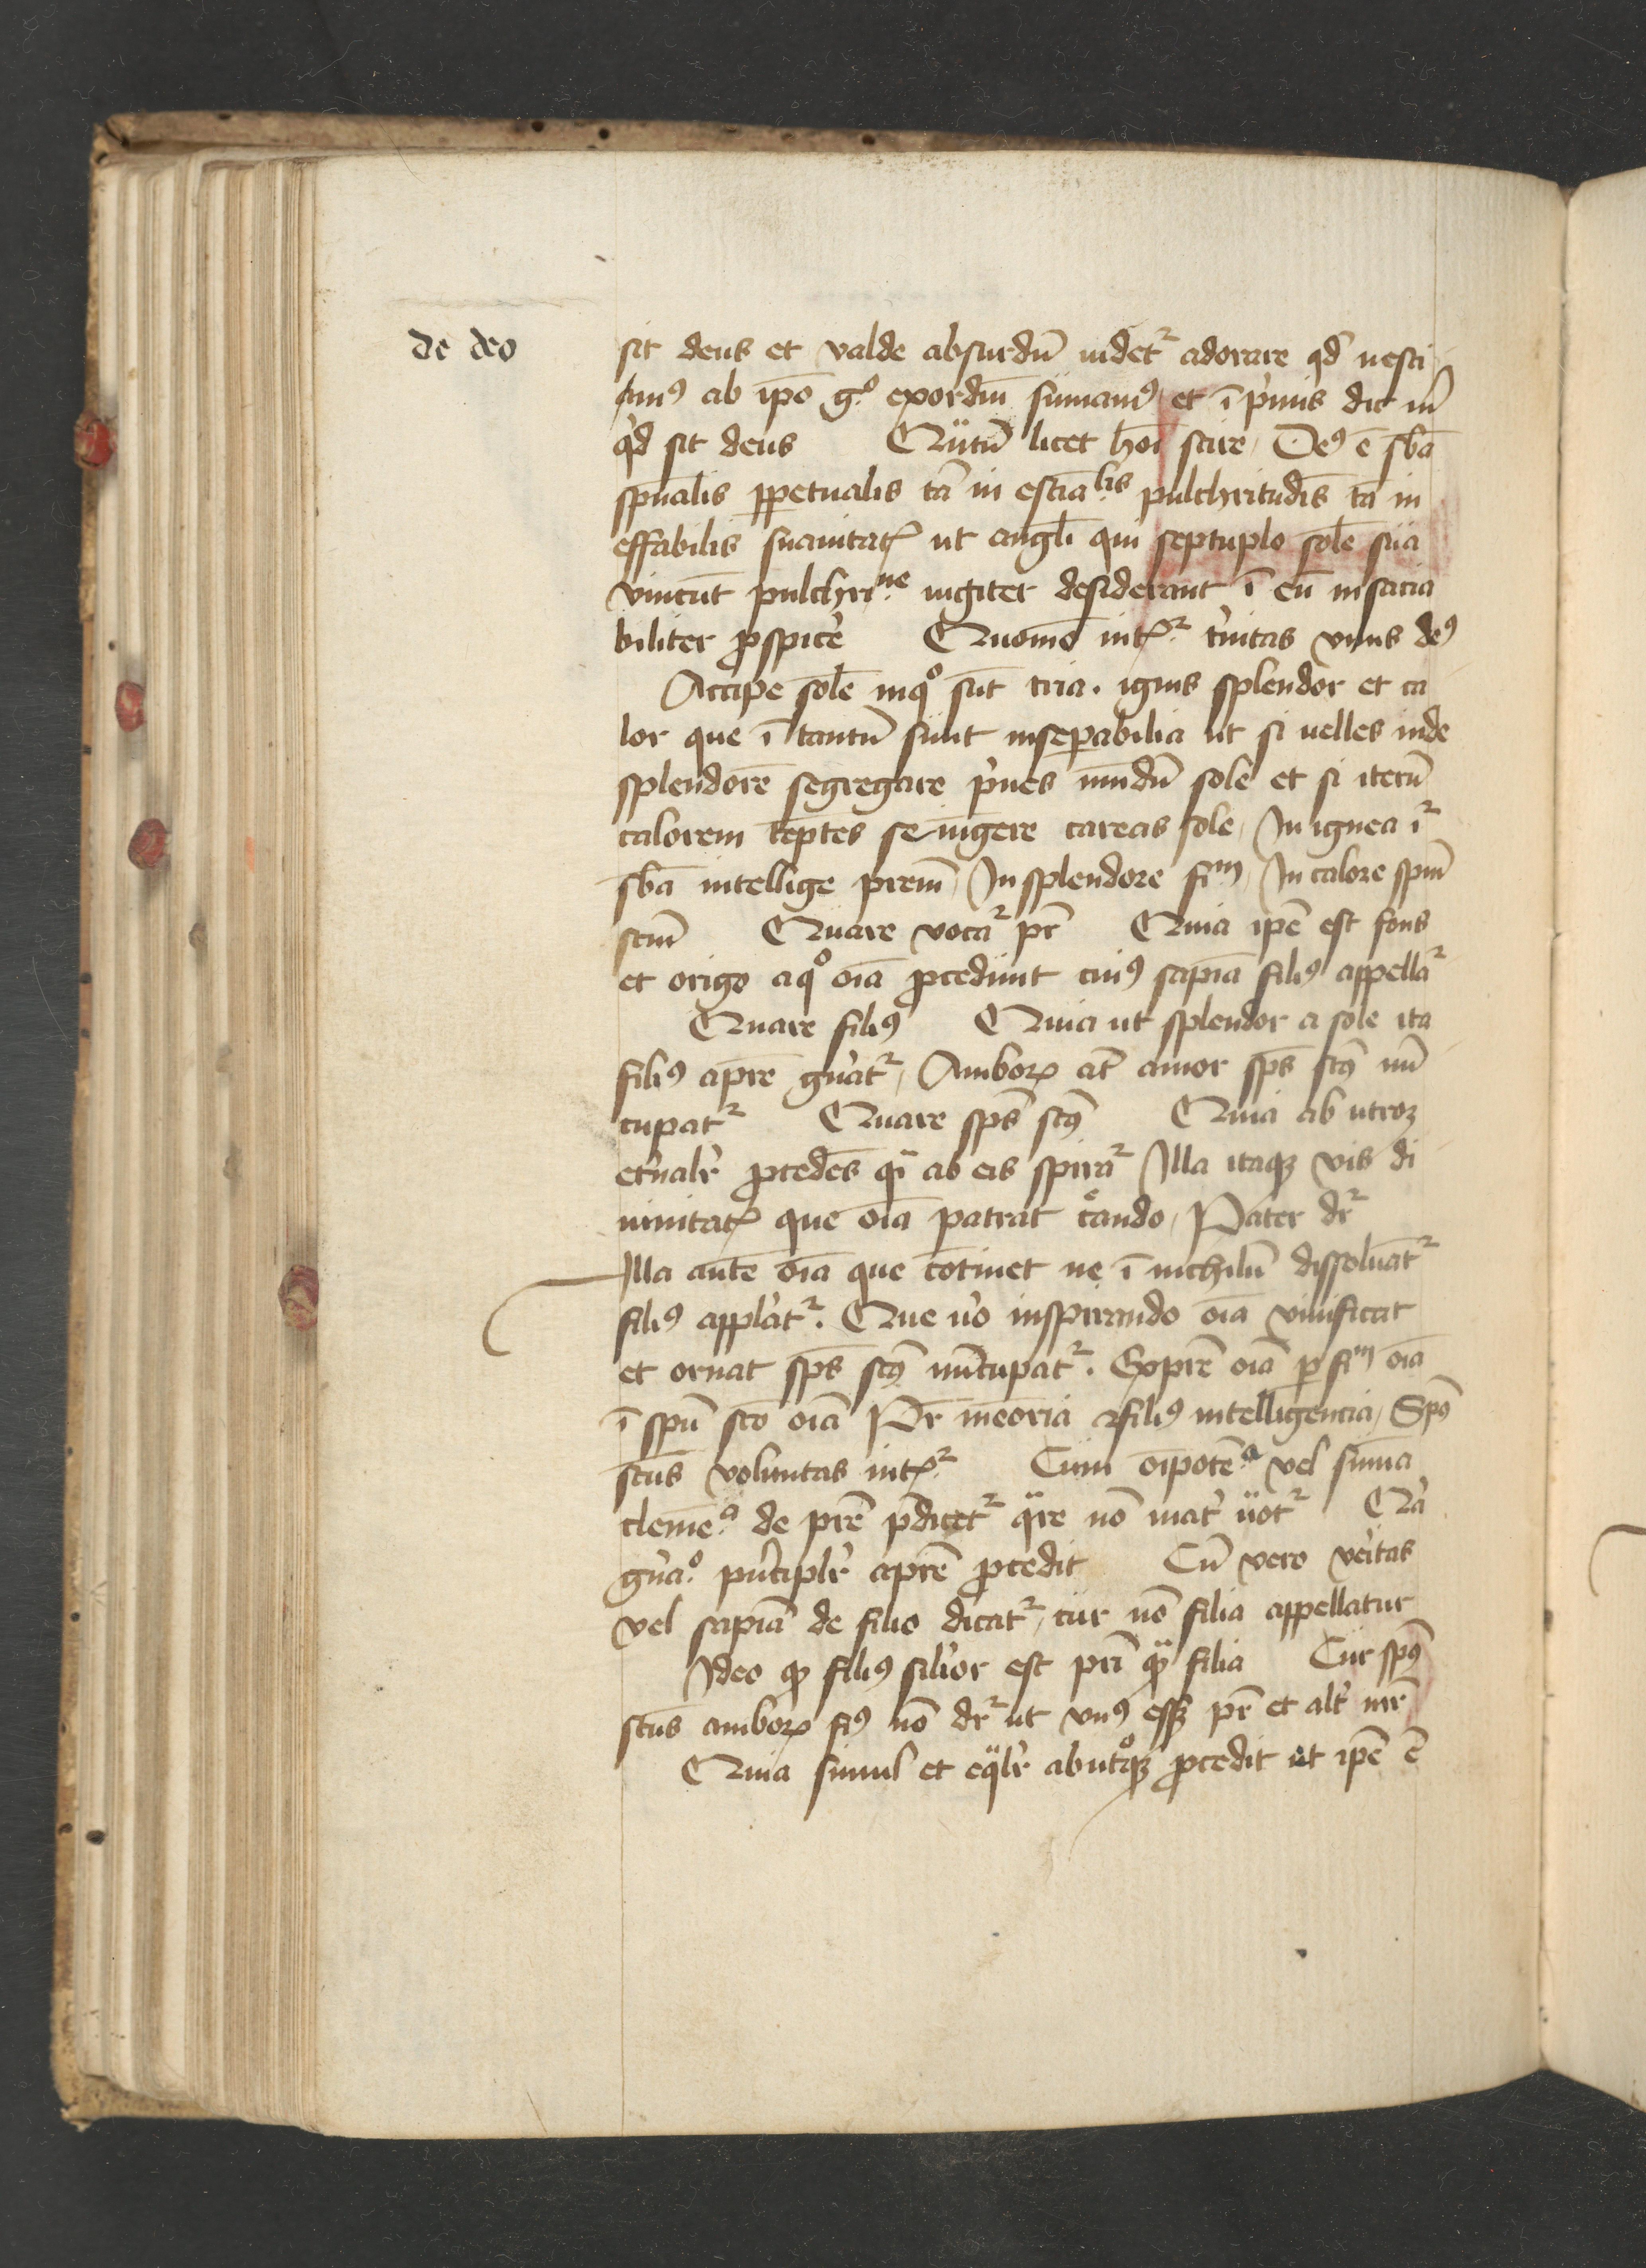 de deo
sit deus et valde absurdū uidetᷣ adorare qd̄ nesci
muꝰ ab ip̄o gͦ exordiū sumamꝰ et ī p̀mis dic m̄
qͥd sit deus Quātū licet hōi scire Deꝰ ē sb̄a
sp̄ualis ꝑpetualis tā in estiā.ˡⁱˢ pulchritudīs tā in
effabilis suauitatꝭ ut angl̄i qui septuplo sole sua
vincūt pulchriⁿᵉ iugiter desiderant ī eū insacia
biliter ꝓspicē Quomō intꝭᷣ tͥnitas vnus deꝰ
Accipe solē inqͦ sūt tria . ignis splendor et ca
lor que ī tantū sunt inseꝑabilia ut si uelles inde
splendorē segregare pͥues mūdū sole et si iterū
calorem tēptes seiūgere careas sole In ignea iᷣ
sb̄a intellige prēm In splendore fiᵐ In calore sp̄m
sc̄m Quare vocāᷣ pr̄ Quia ip̄e est fons
et origo aqͦ oīa ꝓcedunt cuiꝰ sapīa filiꝰ appellāᷣ
Quare filiꝰ Quia ut splendor a sole ita
filiꝰ aprē gn̄atᷣ Amboꝝ at̄ amor sp̄s sc̄ꝰ nū
cupatᷣ Quare sp̄s sc̄ꝰ Quia ab utroꝫ
et̄nalr̄ ꝓcedēs qͣi ab eis spirāᷣ Illa itaqꝫ vis di
uinitatꝭ que oīa patrat cͤando Pater dr̄
Illa autē oīa que cōtinet ne ī nichilū dissoluātᷣ
filiꝰ appl̄atᷣ . Que uͦo inspirando oīa viuificat
et ornat sp̄s sc̄ꝰ nūcupatᷣ . Exprē oīa ꝑ fiᵐ oīa
ī sp̄u sc̄o oīa Pr̄ meōria filiꝰ intelligencia Sp̄ꝰ
sc̄us voluntas intꝭᷣ Cum oīpotēᵃ vel sūma
clemēᵃ de prē p̄dicetᷣ qͣre nō mat̄ uotᷣ Qͣ
gn̄aͦ pͥncipl̄r aprē ꝓcedit Cū vero v̄itas
vel sapīa de filio dicatᷣ cur nō filia appellatur
Ideo qꝫ filiꝰ sil̄ior est pr̄i qͣ filia Cur sp̄ꝰ
sc̄us amboꝝ fiꝰ nō dr̄ ut vnꝰ eēꝫ pr̄ et alt̄ mr̄
Quia simul et eqͣlr̄ abutͦqꝫ ꝓcedit ut ip̄e ē